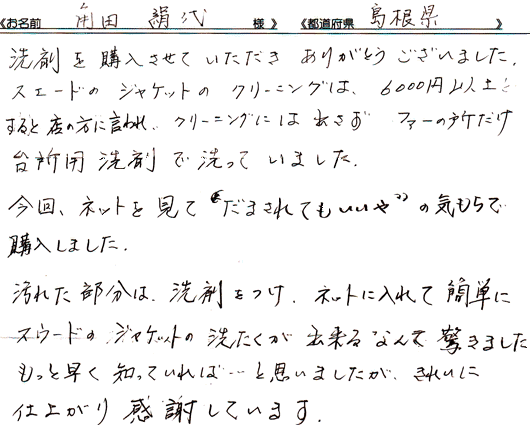 《お名前 角田 絹代 様》 《都道府県 島根県 》
洗剤を購入させていただき ありがとうございました。
スエードの ジャケットの クリーニングは、6000円以上と
すると店の方に言われ、クリーニングには出さず ファーの所だけ
台所用洗剤で洗っていました。
今回、ネットを見て“だまされてもいいや”の気もちで
購入しました。
汚れた部分は、洗剤をつけ、ネットに入れて簡単に
スウードの ジャケットの洗たくが 出来るなんて 驚きました
もっと早く 知っていれば…と思いましたが、きれいに
仕上がり 感謝しています。